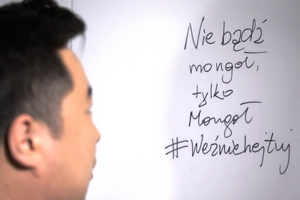 Nie bądź
mongoł,
tylko
Mongoł
#Weźniehejtuj